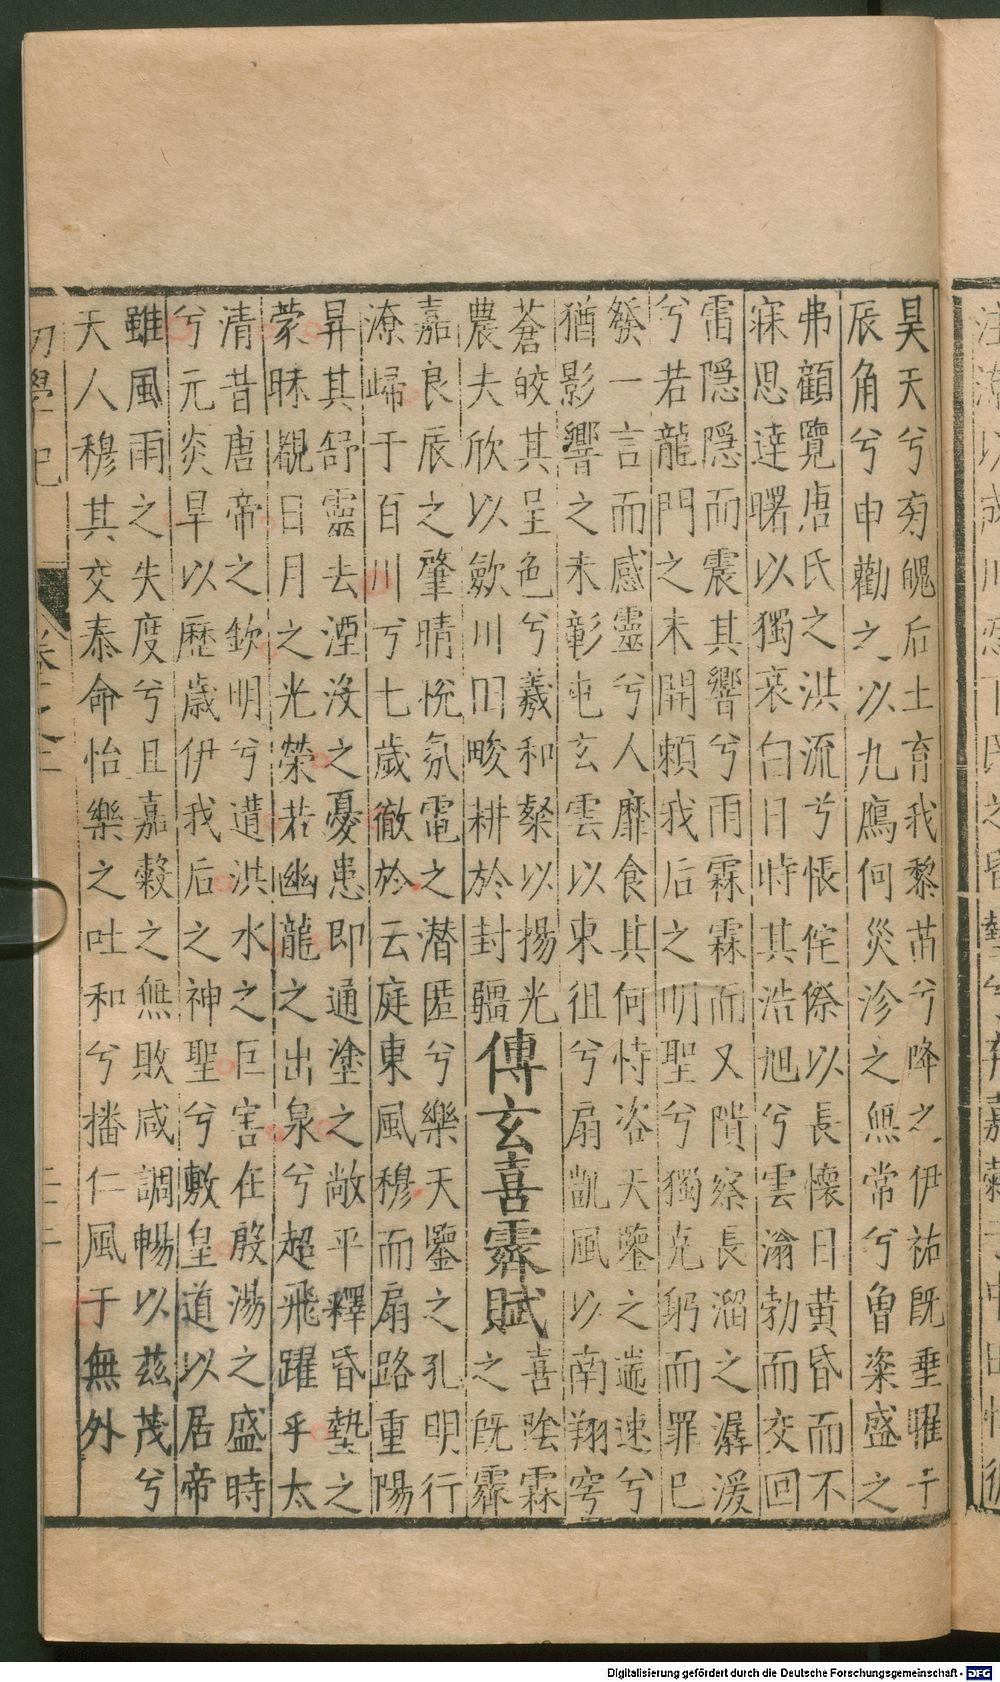 昊天兮有媿后土育我黎苗兮降之伊祐旣垂曜于
辰角兮申勸之以九鳸何災沴之無常兮曾粢盛之
弗顧覽唐氏之洪流兮悵侘傺以長懷日黃昏而不
寐思達曙以獨哀白日時其浩旭兮雲滃勃而交回
雷隱隱而震其響兮雨霖霖而又隤察長溜之潺湲
兮若龍門之未開賴我后之明聖兮獨克躬而罪己
發一言而感靈兮人靡食其何恃咨天鑒之遄速兮
猶影響之未彰屯玄雲以東徂兮扇凱風以南翔穹
蒼皎其呈色兮羲和粲以揚光
農夫欣以歛川田畯耕於封疆
傳玄喜霽賦
喜陰霖
之旣霽
嘉良辰之肇晴悅氛電之潛匿兮樂天鑒之孔明行
潦歸于百川兮七歲徹於云庭東風穆而扇路重陽
昇其舒靈去湮沒之憂患即通塗之敞平釋昏墊之
蒙昧觀日月之光榮若幽龍之出泉兮超飛躍乎太
清昔唐帝之欽明兮遭洪水之巨害在殷湯之盛時
兮元炎旱以歷歲伊我后之神聖兮敷皇道以居帝
雖風雨之失度兮且嘉穀之無敗咸調暢以茲茂兮
天人穆其交泰命怡樂之吐和兮播仁風于無外
初學記
卷之二
二十二
Digitalisierung gefördert durch die Deutsche Forschungsgemeinschaft - DFG